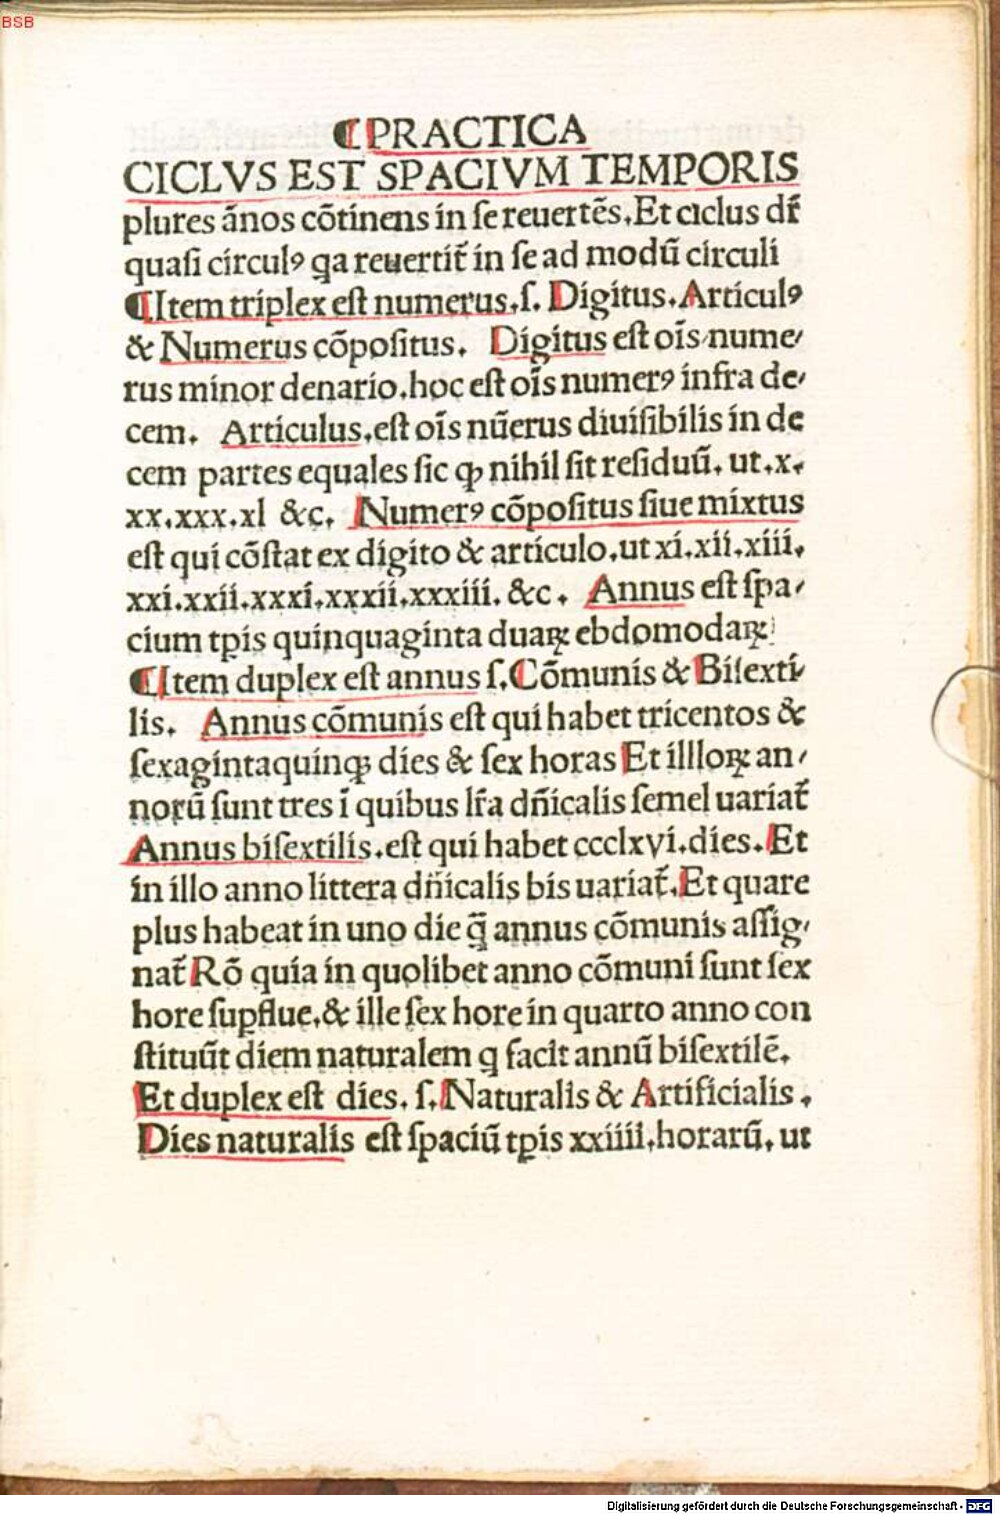 BSB
¶PRACTICA
CICLVS EST SPACIVM TEMPORIS
plures ãnos cõtinens in ſe reuertẽs.Et ciclus dr̃
quaſi circulꝯ ꝗa reuertit᷑ in ſe ad modũ circuli
¶Item triplex eſt numerus.ſ. Digitus.Articulꝯ
& Numerus cõpoſitus. Digitus eſt oĩs nume/
rus minor denario.hoc eſt oĩs numerꝯ infra de/
cem. Articulus.eſt oĩs nũerus diuiſibilis in de
cem partes equales ſic ꝙ nihil ſit reſiduũ. ut.x.
xx.xxx.xl &c. Numerꝯ cõpoſitus ſiue mixtus
eſt qui cõſtat ex digito & articulo.ut xi.xii.xiii.
xxi.xxii.xxxi.xxxii.xxxiii. &c. Annus eſt ſpa/
cium tꝑis quinquaginta duaꝝ ebdomodaꝝ
¶Item duplex eſt annus ſ.Cõmunis & Biſexti/
lis. Annus cõmunis eſt qui habet tricentos &
ſexagintaquinqꝫ dies & ſex horas Et illloꝝ an/
norũ ſunt tres ĩ quibus lr̃a dñicalis ſemel uariat᷑
Annus biſextilis.eſt qui habet ccclxvi.dies.Et
in illo anno littera dñicalis bis uariat᷑.Et quare
plus habeat in uno die ꝗ̃ annus cõmunis aſſig/
nat᷑ Rõ quia in quolibet anno cõmuni ſunt ſex
hore ſuꝑflue.& ille ſex hore in quarto anno con
ſtituũt diem naturalem ꝗ facit annũ biſextilẽ.
Et duplex eſt dies. ſ.Naturalis & Artificialis.
Dies naturalis eſt ſpaciũ tꝑis xxiiii.horarũ. ut
Digitalisierung gefördert durch die Deutsche Forschungsgemeinschaft - DFG